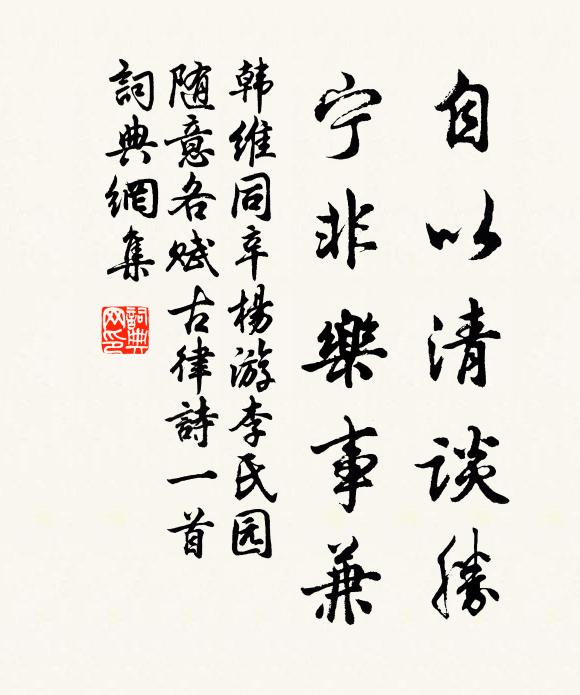 自以清談勝
宁非樂事兼
韩維同辛楊游李氏园
随意各赋古律詩一首
詞典網集
詞典
网印